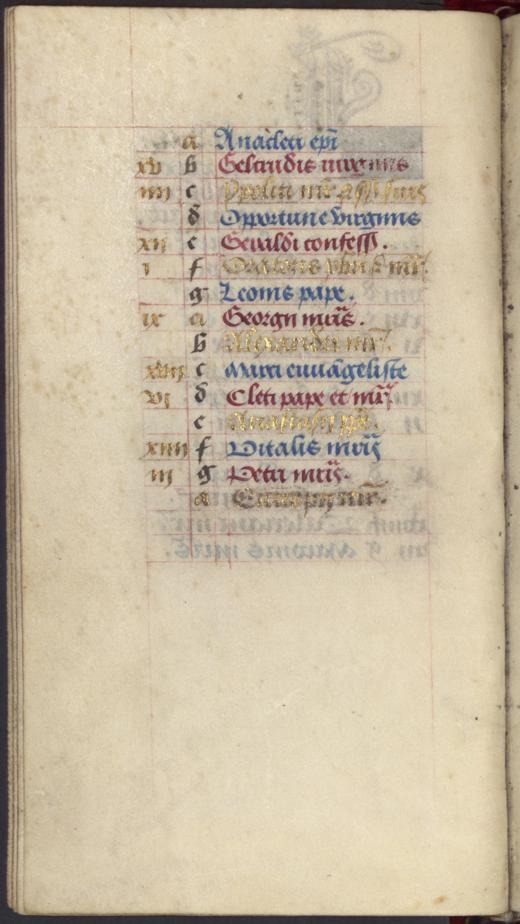 a Anacleti epi
xv b Geltrudis virginis
iiii c
d Oportune virginis
xii e Gevaldi confess.
i f
g Leonis pape.
ix a Georgii mr̃is.
b Alexandri mr̃.
xvii c Marci euuãgeliste
vi d Cleti pape et mr̃
e Anastasii pp̃.
xiiii f Vitalis mr̃is
iii g Petri mr̃is.
a Eutropii mr̃.